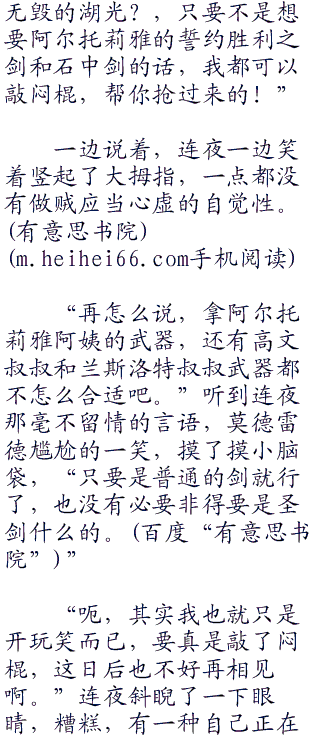 无毁的湖光？，只要不是想
要阿尔托莉雅的誓约胜利之
剑和石中剑的话，我都可以
敲闷棍，帮你抢过来的！”
一边说着，连夜一边笑
着竖起了大拇指，一点都没
有做贼应当心虚的自觉性。
(有意思书院)
(m.heihei66.com手机阅读)
“再怎么说，拿阿尔托
莉雅阿姨的武器，还有高文
叔叔和兰斯洛特叔叔武器都
不怎么合适吧。”听到连夜
那毫不留情的言语，莫德雷
德尴尬的一笑，摸了摸小脑
袋，“只要是普通的剑就行
了，也没有必要非得要是圣
剑什么的。(百度“有意思书
院”)”
“呃，其实我也就只是
开玩笑而已，要真是敲了闷
棍，这日后也不好再相见
啊。”连夜斜睨了一下眼
睛，糟糕，有一种自己正在